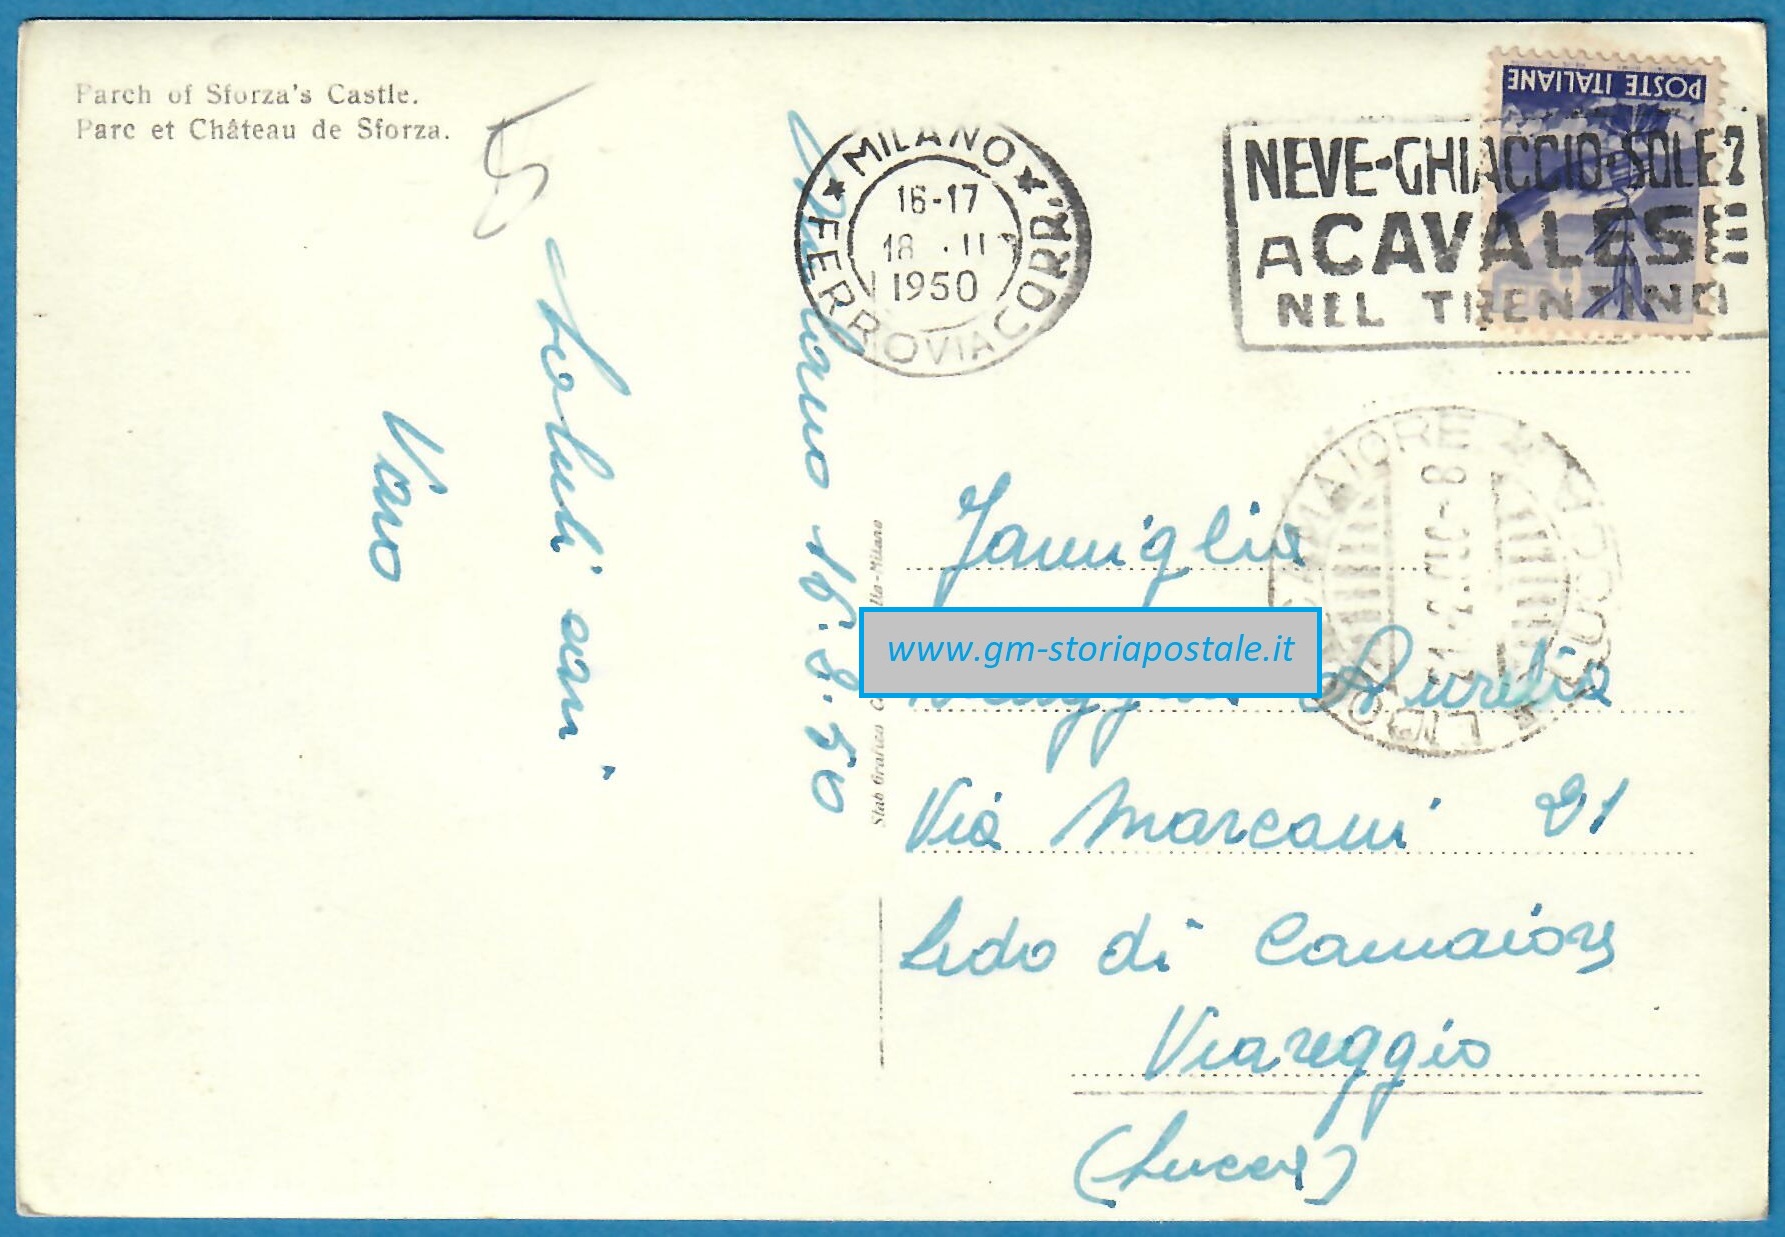 Parch of Sforza's Castle.
Parc et Château de Sforza.
Milano 16.2.50
Saluti cari
Vano
MILANO
FERROVIA CORR.
16-17
18 . II
1950
NEVE-GHIACCIO-SOLE?
A CAVALESE
NEL TRENTINO
POSTE ITALIANE
CAMAIORE
LIDO
Stab Grafico
-Milano
www.gm-storiapostale.it
Famiglia
Aurelia
Via Marconi 21
Lido di Camaiore
Viareggio
(Lucca)